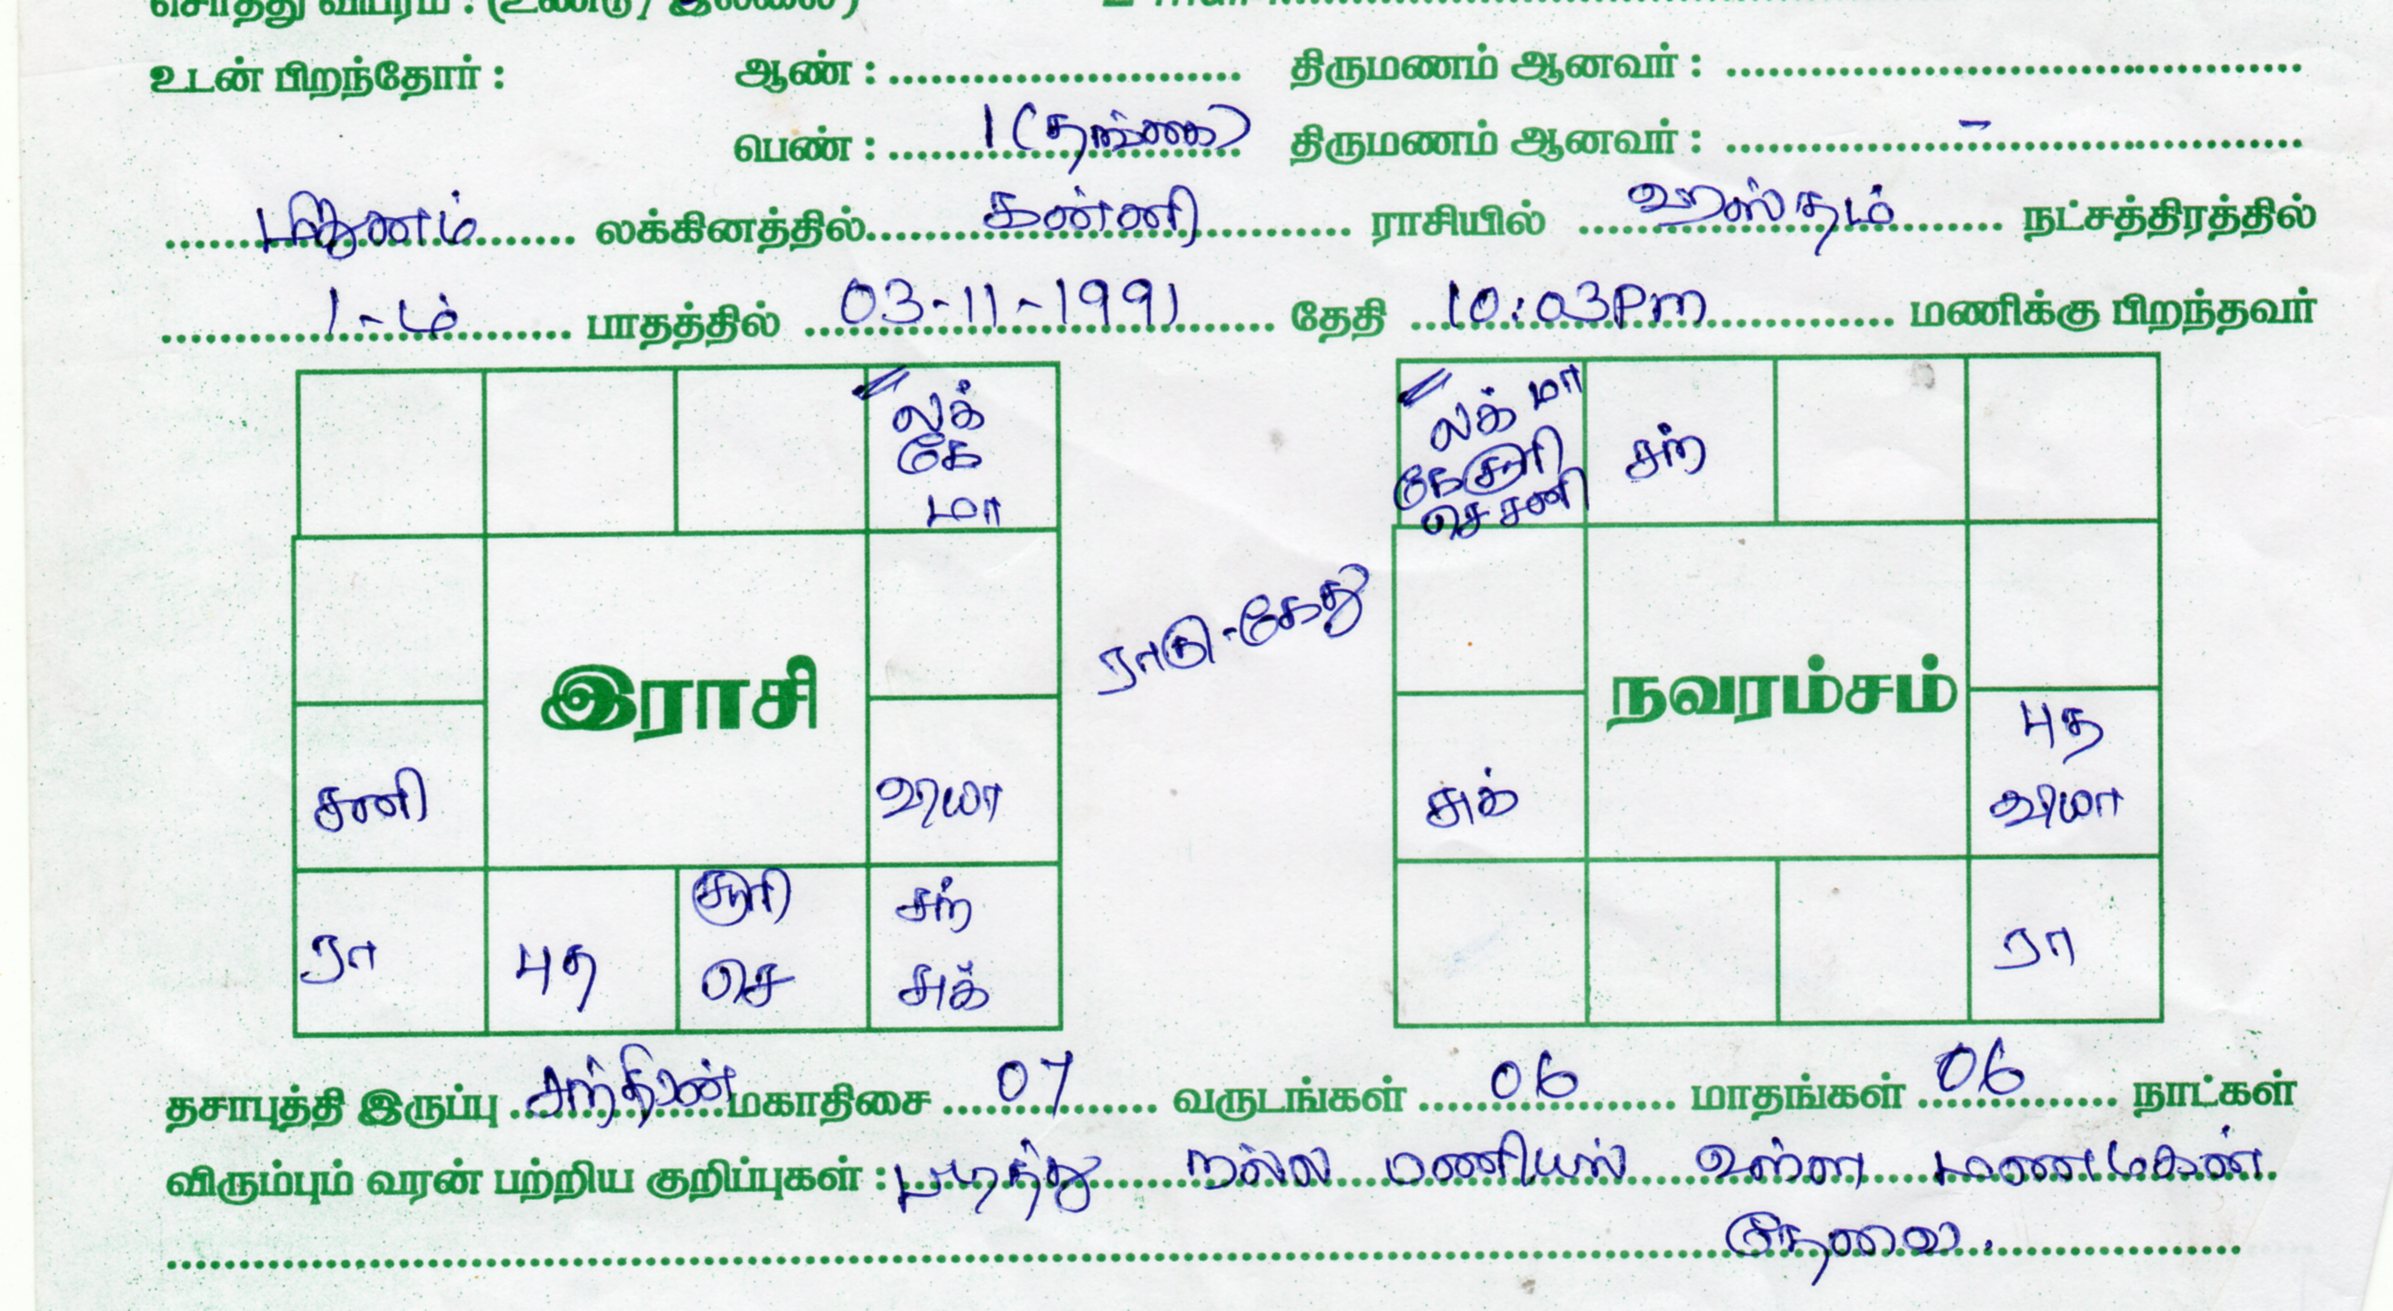 சொத்து விபரம் : (உண்டு / இல்லை) E-mail
உடன் பிறந்தோர் : ஆண் : திருமணம் ஆனவர் :
பெண் : 1 (தங்கை) திருமணம் ஆனவர் : -
மிதுனம் லக்கினத்தில் கன்னி ராசியில் ஹஸ்தம் நட்சத்திரத்தில்
1-ம் பாதத்தில் 03-11-1991 தேதி 10:03pm மணிக்கு பிறந்தவர்
லக்
கே
மா
சனி
இராசி
வியா
ரா
புத
சூரி
செ
சந்
சுக்
ராகு-கேது
லக் மா
கே சூரி
செ சனி
சந்
நவரம்சம்
சுக்
புத
வியா
ரா
தசாபுத்தி இருப்பு சந்திரன் மகாதிசை 07 வருடங்கள் 06 மாதங்கள் 06 நாட்கள்
விரும்பும் வரன் பற்றிய குறிப்புகள் : படித்து நல்ல பணியில் உள்ள மணமகன்
தேவை.